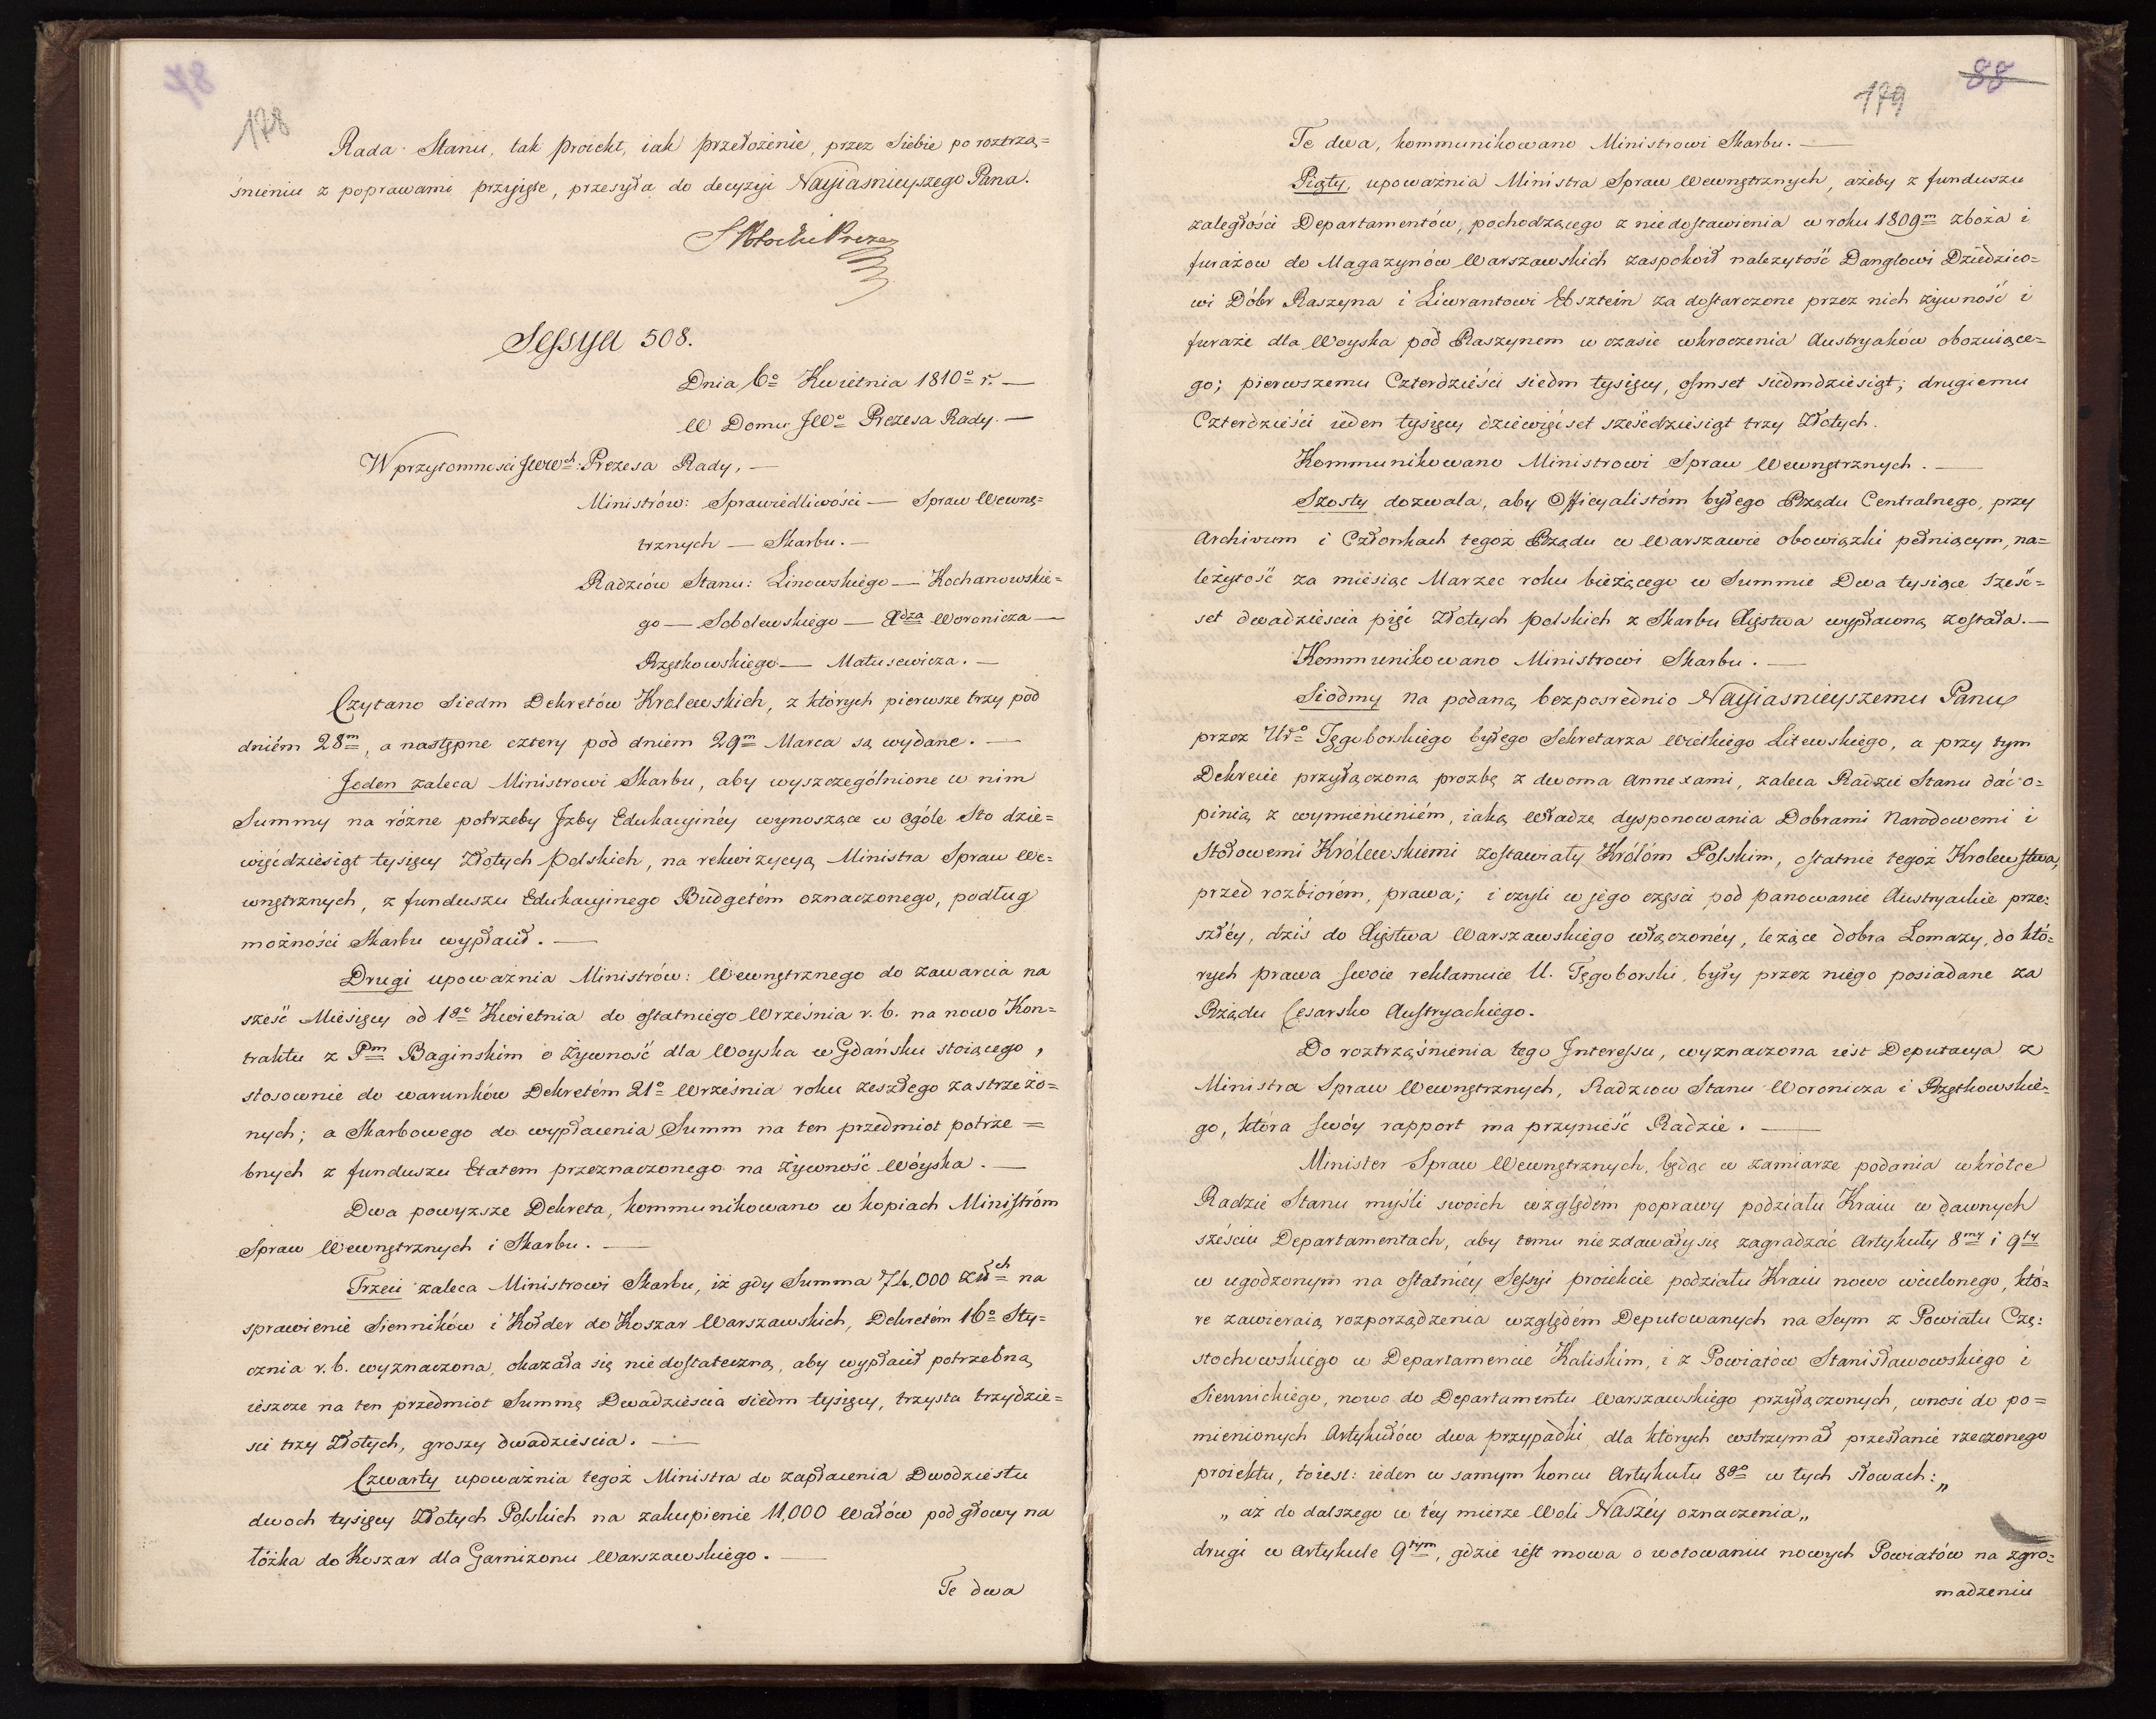 178
Rada Stanu, tak proiekt, iak przełożenie, przez Siebie po roztrzą=
śnieniu z poprawami przyięte, przesyła do decyzyi Nayiaśnieyszego Pana.
Sessya 508.
Dnia 6º Kwietnia 1810º r. —
W Domu JWº Prezesa Rady. —
W przytomności JWW ch: Prezesa Rady, —
Ministrów: Sprawiedliwości — Spraw Wewnę=
trznych — Skarbu. —
Radzców Stanu: Linowskiego — Kochanowskie=
go — Sobolewskiego — Xdza Woronicza —
Rzętkowskiego — Matusewicza. —
Czytano Siedm Dekretów Krolewskich, z których pierwsze trzy pod
dniém 28m, a następne cztery pod dniem 29m Marca są wydane. —
Jeden zaleca Ministrowi Skarbu, aby wyszczególnione w nim
Summy na różne potrzeby Jzby Edukacyinéy wynoszące w ogóle Sto dzie=
więćdziesiąt tysięcy Złotych polskich, na rekwizycyą Ministra Spraw We=
wnętrznych, z funduszu Edukacyinego Budgetém oznaczonego, podług
możności Skarbu wypłacił. —
Drugi upoważnia Ministrów: Wewnętrznego do zawarcia na
sześć Miesięcy od 1go Kwietnia do ostatniego Września r. b. na nowo Kon=
traktu z Pm Baginskim o żywność dla Woyska w Gdańsku stoiącego,
stosownie do warunków Dekretém 21º Września roku zeszłego zastrzeżo=
nych; a Skarbowego do wypłacenia Summ na ten przedmiot potrze=
bnych z funduszu Etatem przeznaczonego na żywność Wóyska. —
Dwa powyzsze Dekreta, kommunikowano w kopiach Ministróm
Spraw Wewnętrznych i Skarbu. —
Trzeci zaleca Ministrowi Skarbu, iż gdy Summa 74,000 Złch na
sprawienie Sienników i Kołder do Koszar Warszawskich, Dekretém 16º Sty=
cznia r. b. wyznaczona, okazała się niedostateczną, aby wypłacił potrzebną
ieszcze na ten przedmiot Summę Dwadzieścia siedm tysięcy, trzysta trzydzie=
ści trzy Złotych, groszy dwadzieścia. —
Czwarty upoważnia tegoż Ministra do zapłacenia Dwodziestu
dwoch tysięcy Złotych Polskich na zakupienie 11,000 Wałów pod głowy na
łóżka do Koszar dla Garnizonu Warszawskiego. —
Te dwa
88
179
Te dwa, kommunikowano Ministrowi Skarbu. —
Piąty, upoważnia Ministra Spraw Wewnętrznych, ażeby z funduszu
zaległości Departamentów, pochodzącego z niedostawienia w roku 1809m zboża i
furażow do Magazynów Warszawskich zaspokoił należytość Danglowi Dziedzico=
wi Dóbr Raszyna i Liwrantowi Ebsztein za dostarczone przez nich żywność i
furaże dla Woyska pod Raszynem w czasie wkroczenia Austryaków obozuiące=
go; pierwszemu Czterdzieści siedm tysięcy, osmset siedmdziesiąt; drugiemu
Czterdzieści ieden tysięcy dziewięćset sześćdziesiąt trzy Złotych.
Kommunikowano Ministrowi Spraw Wewnętrznych. —
Szosty dozwala, aby Officyalistóm byłego Rządu Centralnego, przy
Archivum i Członkach tegoż Rządu w Warszawie obowiązki pełniącym, na=
leżytość za miésiąc Marzec roku bieżącego w Summie Dwa tysiące sześć=
set dwadzieścia pięć Złotych polskich z Skarbu Xięstwa wypłaconą została. —
Kommunikowano Ministrowi Skarbu. —
Siódmy na podaną bezpośrednio Nayiaśnieyszemu Panu
przez Urº Tęgoborskiego byłego Sekretarza Wielkiego Litewskiego, a przy tym
Dekrecie przyłączoną prozbę z dwoma Annexami, zaleca Radzie Stanu dać o=
pinią z wymienieniém, iaką władzę dysponowania Dobrami Narodowemi i
Stołowemi Królewskiemi zostawiały Królóm Polskim, ostatnie tegoż Krolewstwa,
przed rozbiorém, prawa; i czyli w jego części pod panowanie Austryackie prze=
szłéy, dziś do Xięstwa Warszawskiego włączonéy, leżące dobra Lomazy, do któ=
rych prawa swoie reklamuie U. Tęgoborski, były przez niego posiadane za
Rządu Cesarsko Austryackiego.
Do roztrząśnienia tego Interessu, wyznaczona iest Deputacya z
Ministra Spraw Wewnętrznych, Radzcow Stanu Woronicza i Rzętkowskie=
go, która swóy rapport ma przynieść Radzie. —
Minister Spraw Wewnętrznych, będąc w zamiarze podania wkrótce
Radzie Stanu myśli swoich względém poprawy podziału Kraiu w dawnych
sześciu Departamentach, aby temu niezdawały się zagradzać Artykuły 8my i 9ty
w ugodzonym na ostatniéy Sessyi proiekcie podziału Kraiu nowo wcielonego, któ=
re zawieraią rozporządzenia względém Deputowanych na Seym z Powiatu Czę=
stochowskiego w Departamencie Kaliskim, i z Powiatów Stanisławowskiego i
Siennickiego, nowo do Departamentu Warszawskiego przyłączonych, wnosi do po=
mienionych Artykułów dwa przypadki, dla których wstrzymał przesłanie rzeczonego
proiektu, toiest: ieden w samym końcu Artykułu 8go w tych słowach: „
„ aż do dalszego w téy mierze Woli Naszéy oznaczenia „
drugi w Artykule 9tym, gdzie iest mowa o wotowaniu nowych Powiatów na zgro=
madzeniu